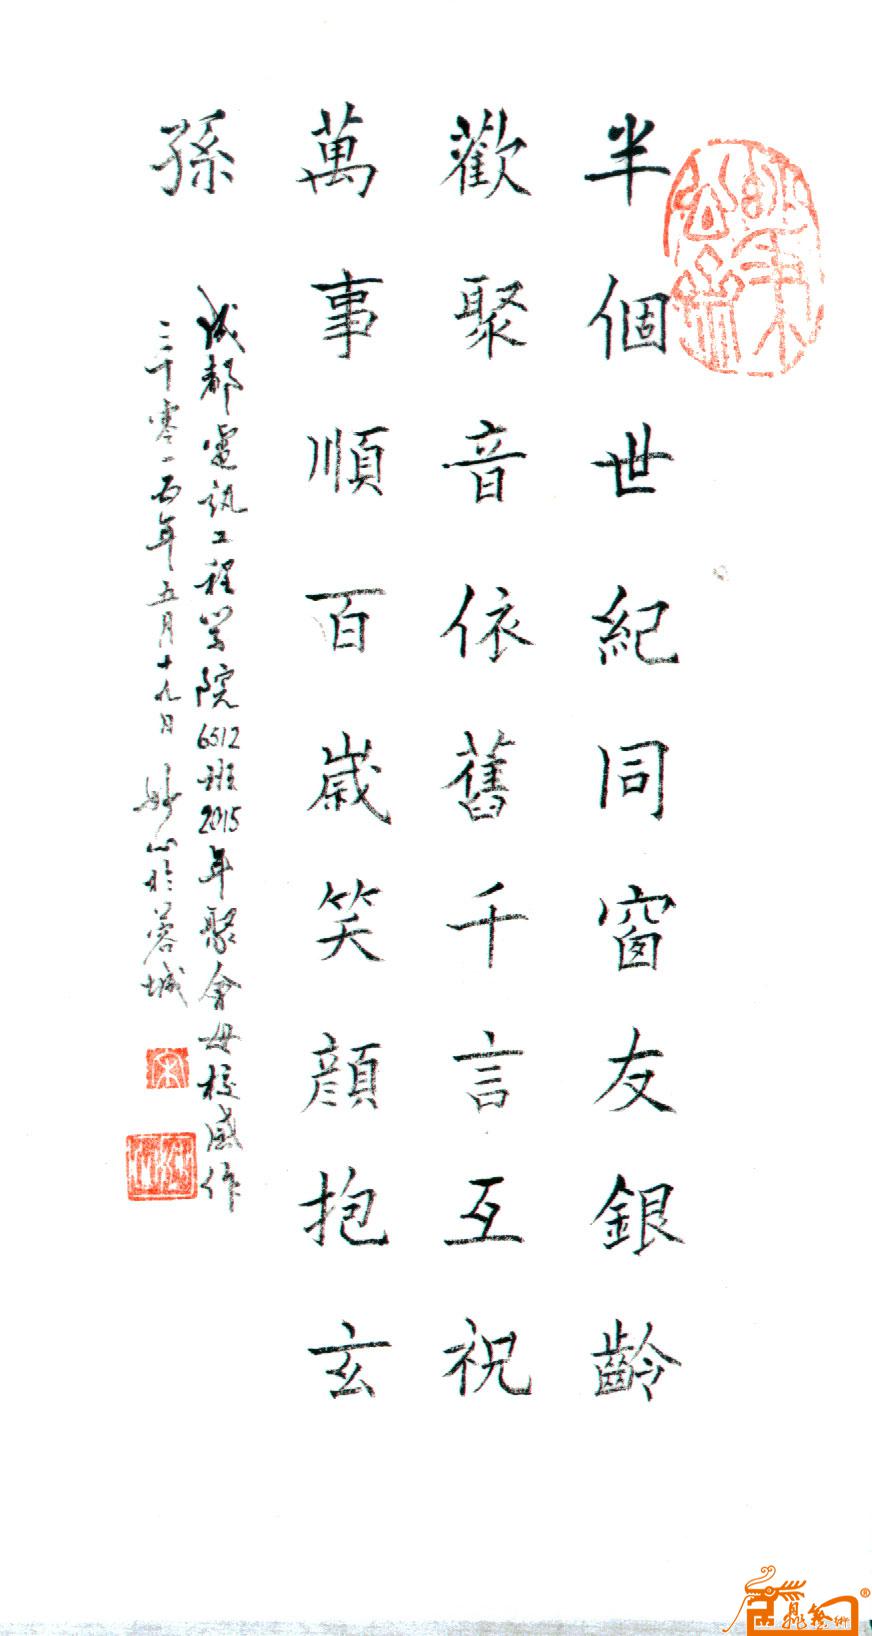 半個世紀同窗友銀齡
歡聚音依舊千言互祝
萬事順百歲笑顏抱玄
孫
成都電訊工程学院6512班2015年聚會母校感作
二千零一五年五月十九日 妙心於蓉城